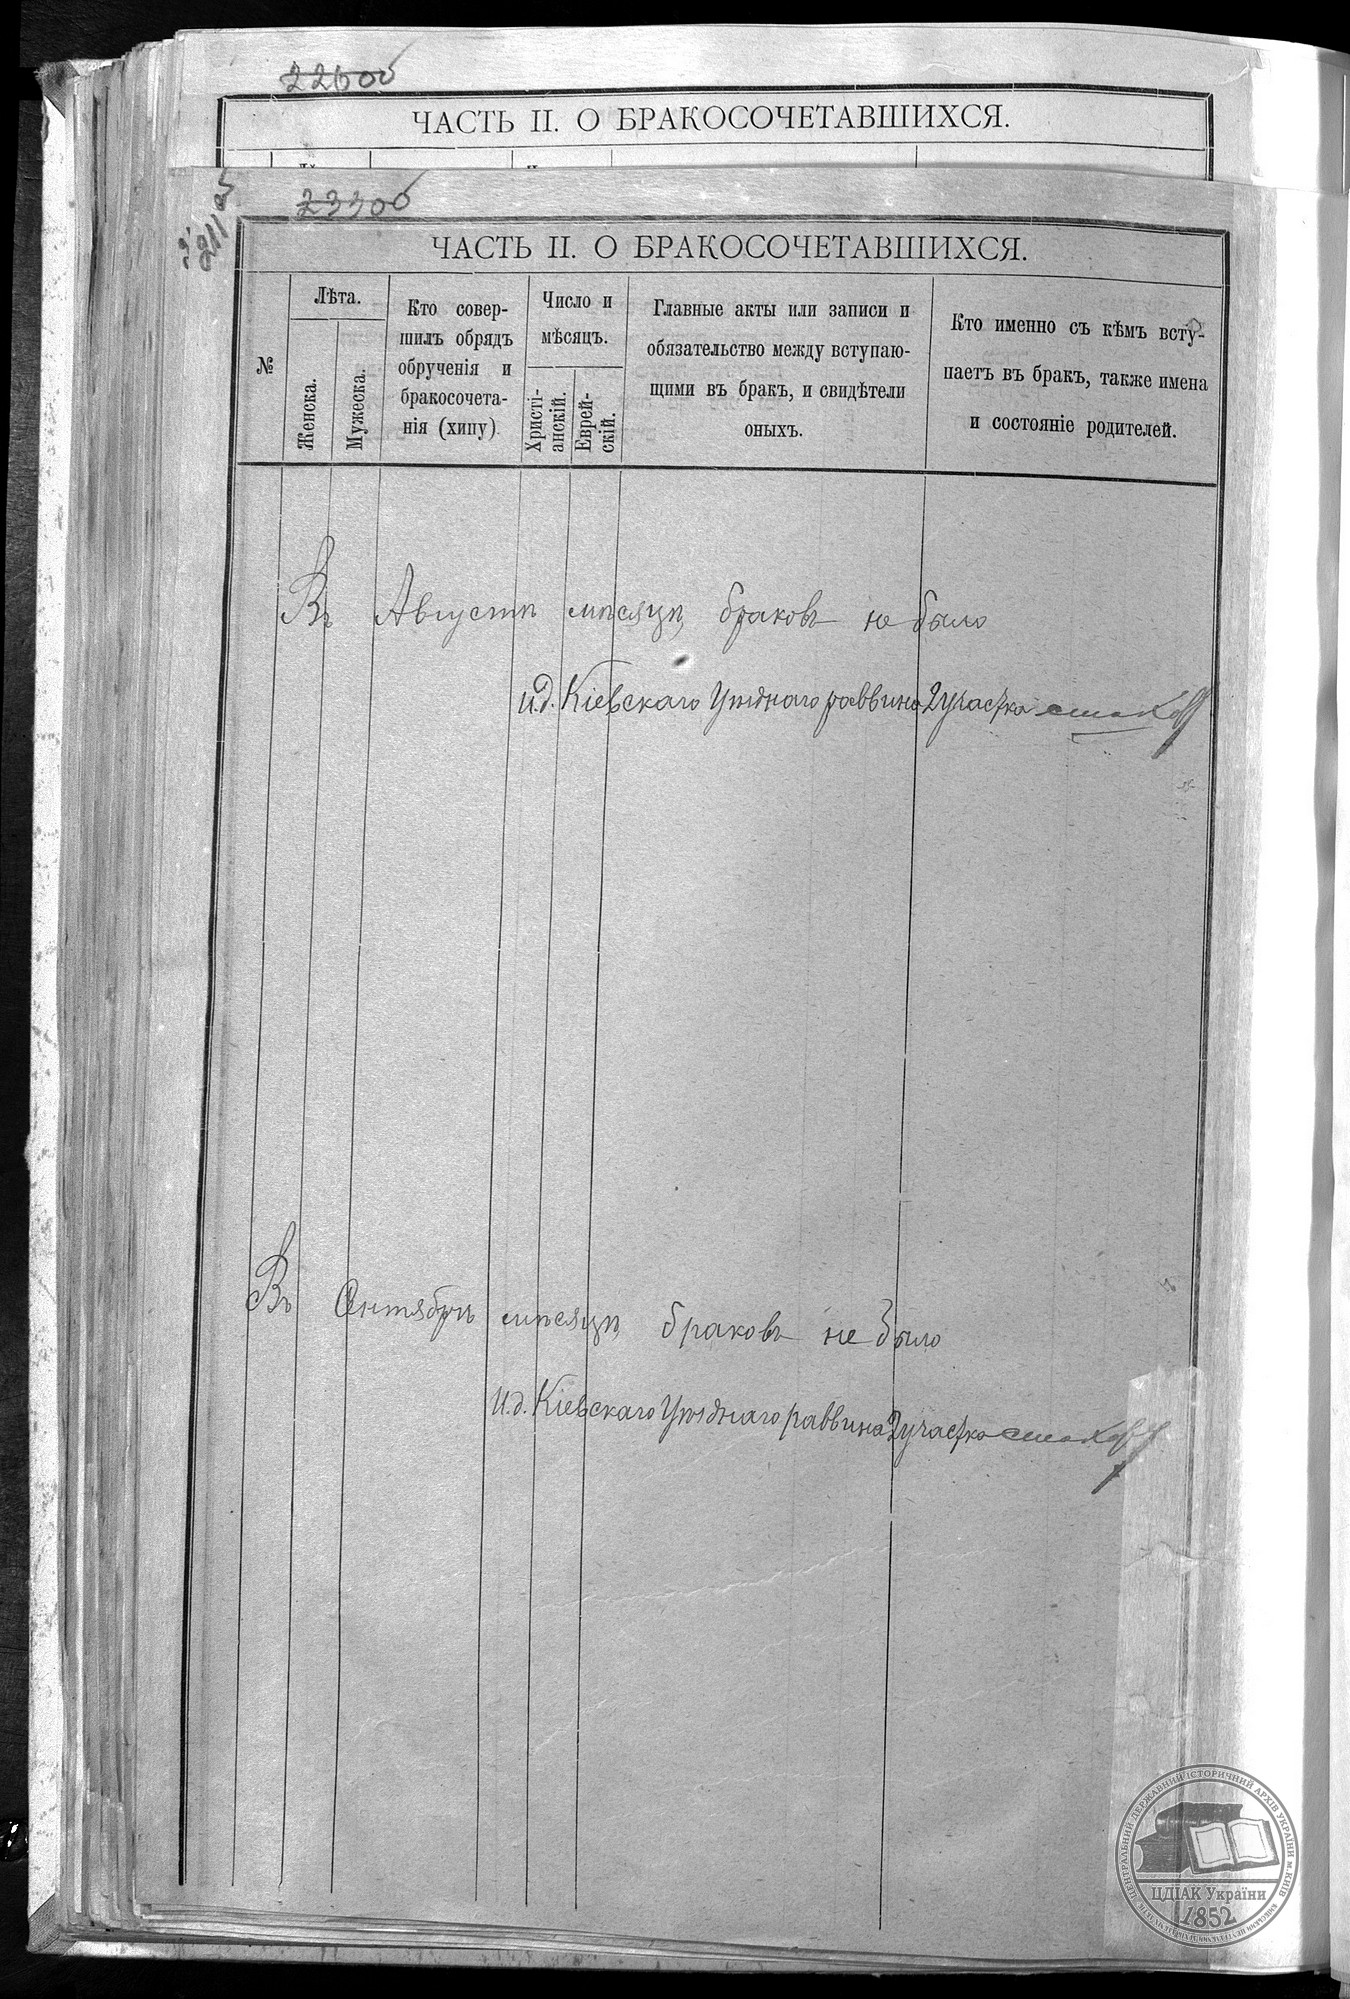 ЧАСТЬ II. О БРАКОСОЧЕТАВШИХСЯ.
ЧАСТЬ II. О БРАКОСОЧЕТАВШИХСЯ.
№
Лѣта.
Женска.
Мужеска.
Кто совер-
шилъ обрядъ
обрученія и
бракосочета-
нія (хипу).
Число и
мѣсяцъ.
Христі-
анскій.
Еврей-
скій.
Главные акты или записи и
обязательство между вступаю-
щими въ бракъ, и свидѣтели
оныхъ.
Кто именно съ кѣмъ всту-
паетъ въ бракъ, также имена
и состояніе родителей.
Въ Августѣ мѣсяцѣ браковъ не было
и.д. Кіевскаго Уѣзднаго раввина 2 участка
Въ Сентябрѣ мѣсяцѣ браковъ не было
И.д. Кіевскаго Уѣзднаго раввина 2 участка
ЦЕНТРАЛЬНИЙ ДЕРЖАВНИЙ ІСТОРИЧНИЙ АРХІВ УКРАЇНИ м. КИЇВ
ЦДІАК України
1852